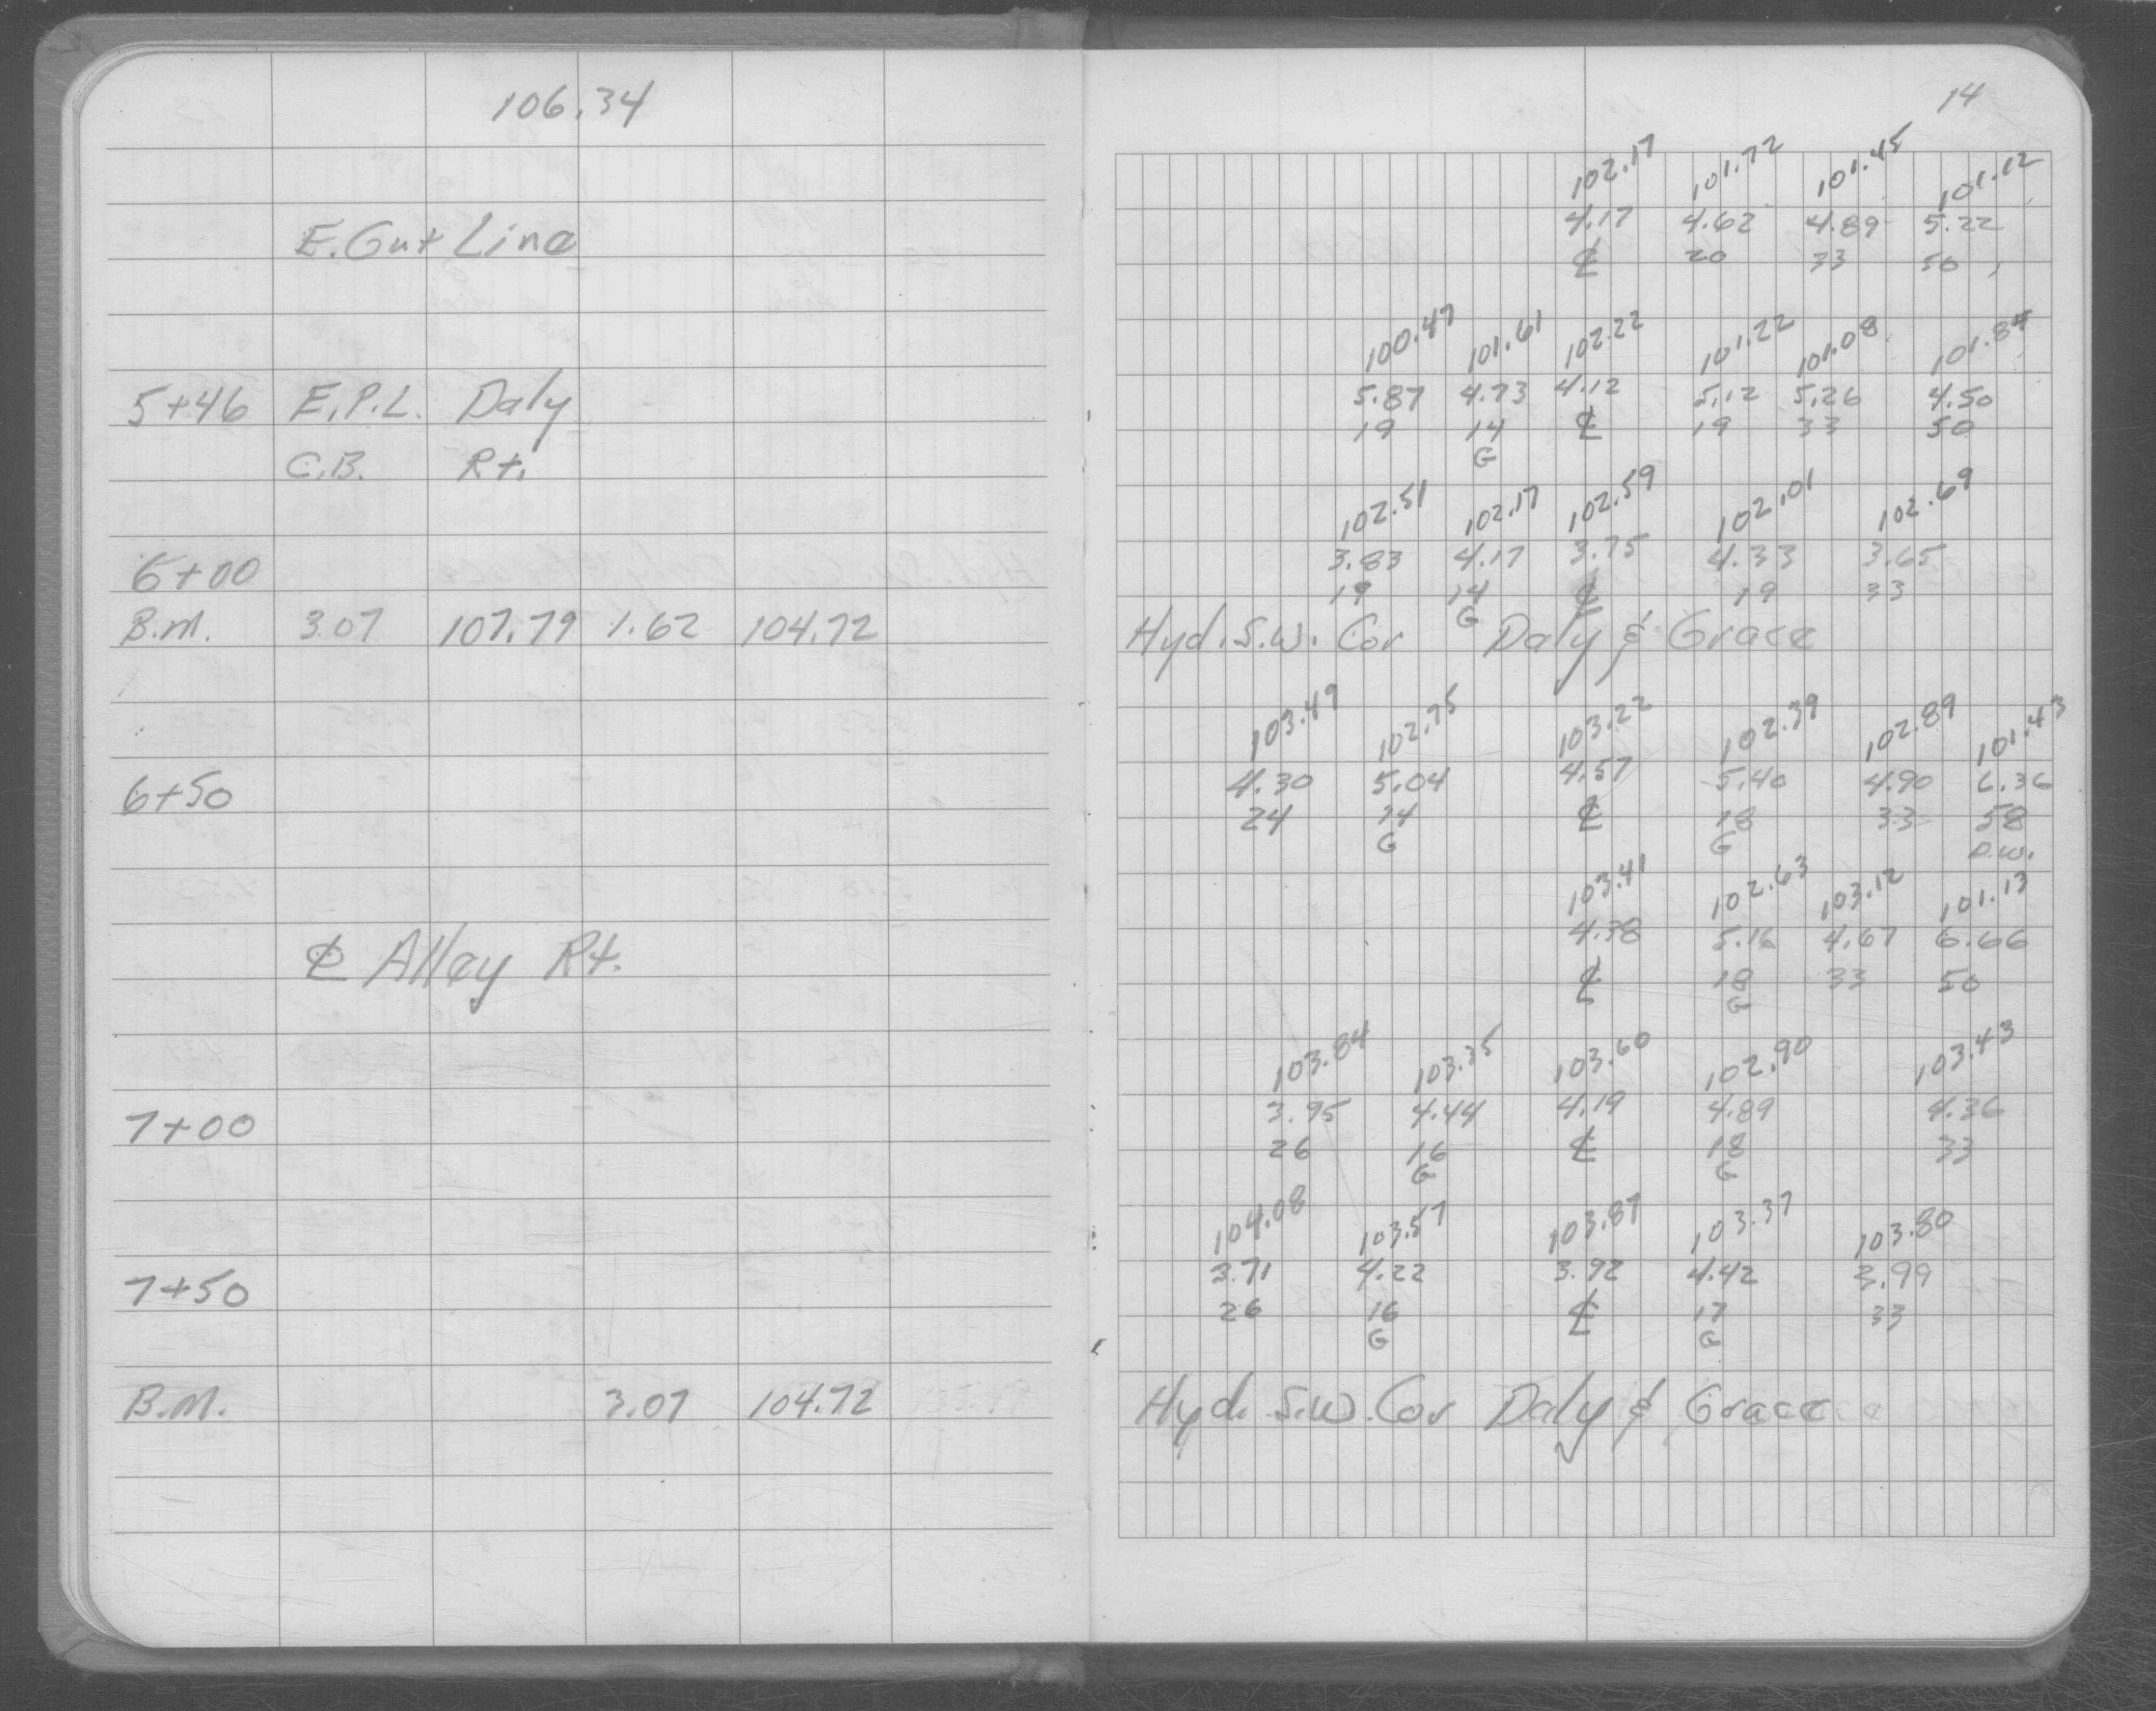 106.34
E. Gut Line
5+46 E.P.L. Daly
C.B. Rt.
6+00
B.M. 3.07 107.79 1.62 104.72
6+50
℄ Alley Rt.
7+00
7+50
B.M. 3.07 104.72
14
102.17 101.72 101.45 101.12
4.17 4.62 4.89 5.22
℄ 20 33 50
100.47 101.61 102.22 101.22 101.08 101.84
5.87 4.73 4.12 5.12 5.26 4.50
19 14 ℄ 19 33 50
G
102.51 102.17 102.59 102.01 102.69
3.83 4.17 3.75 4.33 3.65
19 14 ℄ 19 33
G
Hyd. S.W. Cor Daly & Grace
103.49 102.75 103.22 102.39 102.89 101.43
4.30 5.04 4.57 5.40 4.90 6.36
24 14 ℄ 18 33 58
G G D.W.
103.41 102.63 103.12 101.13
4.38 5.16 4.67 6.66
℄ 18 33 50
G
103.84 103.35 103.60 102.90 103.43
3.95 4.44 4.19 4.89 4.36
26 16 ℄ 18 33
G G
104.08 103.57 103.87 103.37 103.80
3.71 4.22 3.92 4.42 3.99
26 16 ℄ 17 33
G G
Hyd. S.W. Cor Daly & Grace